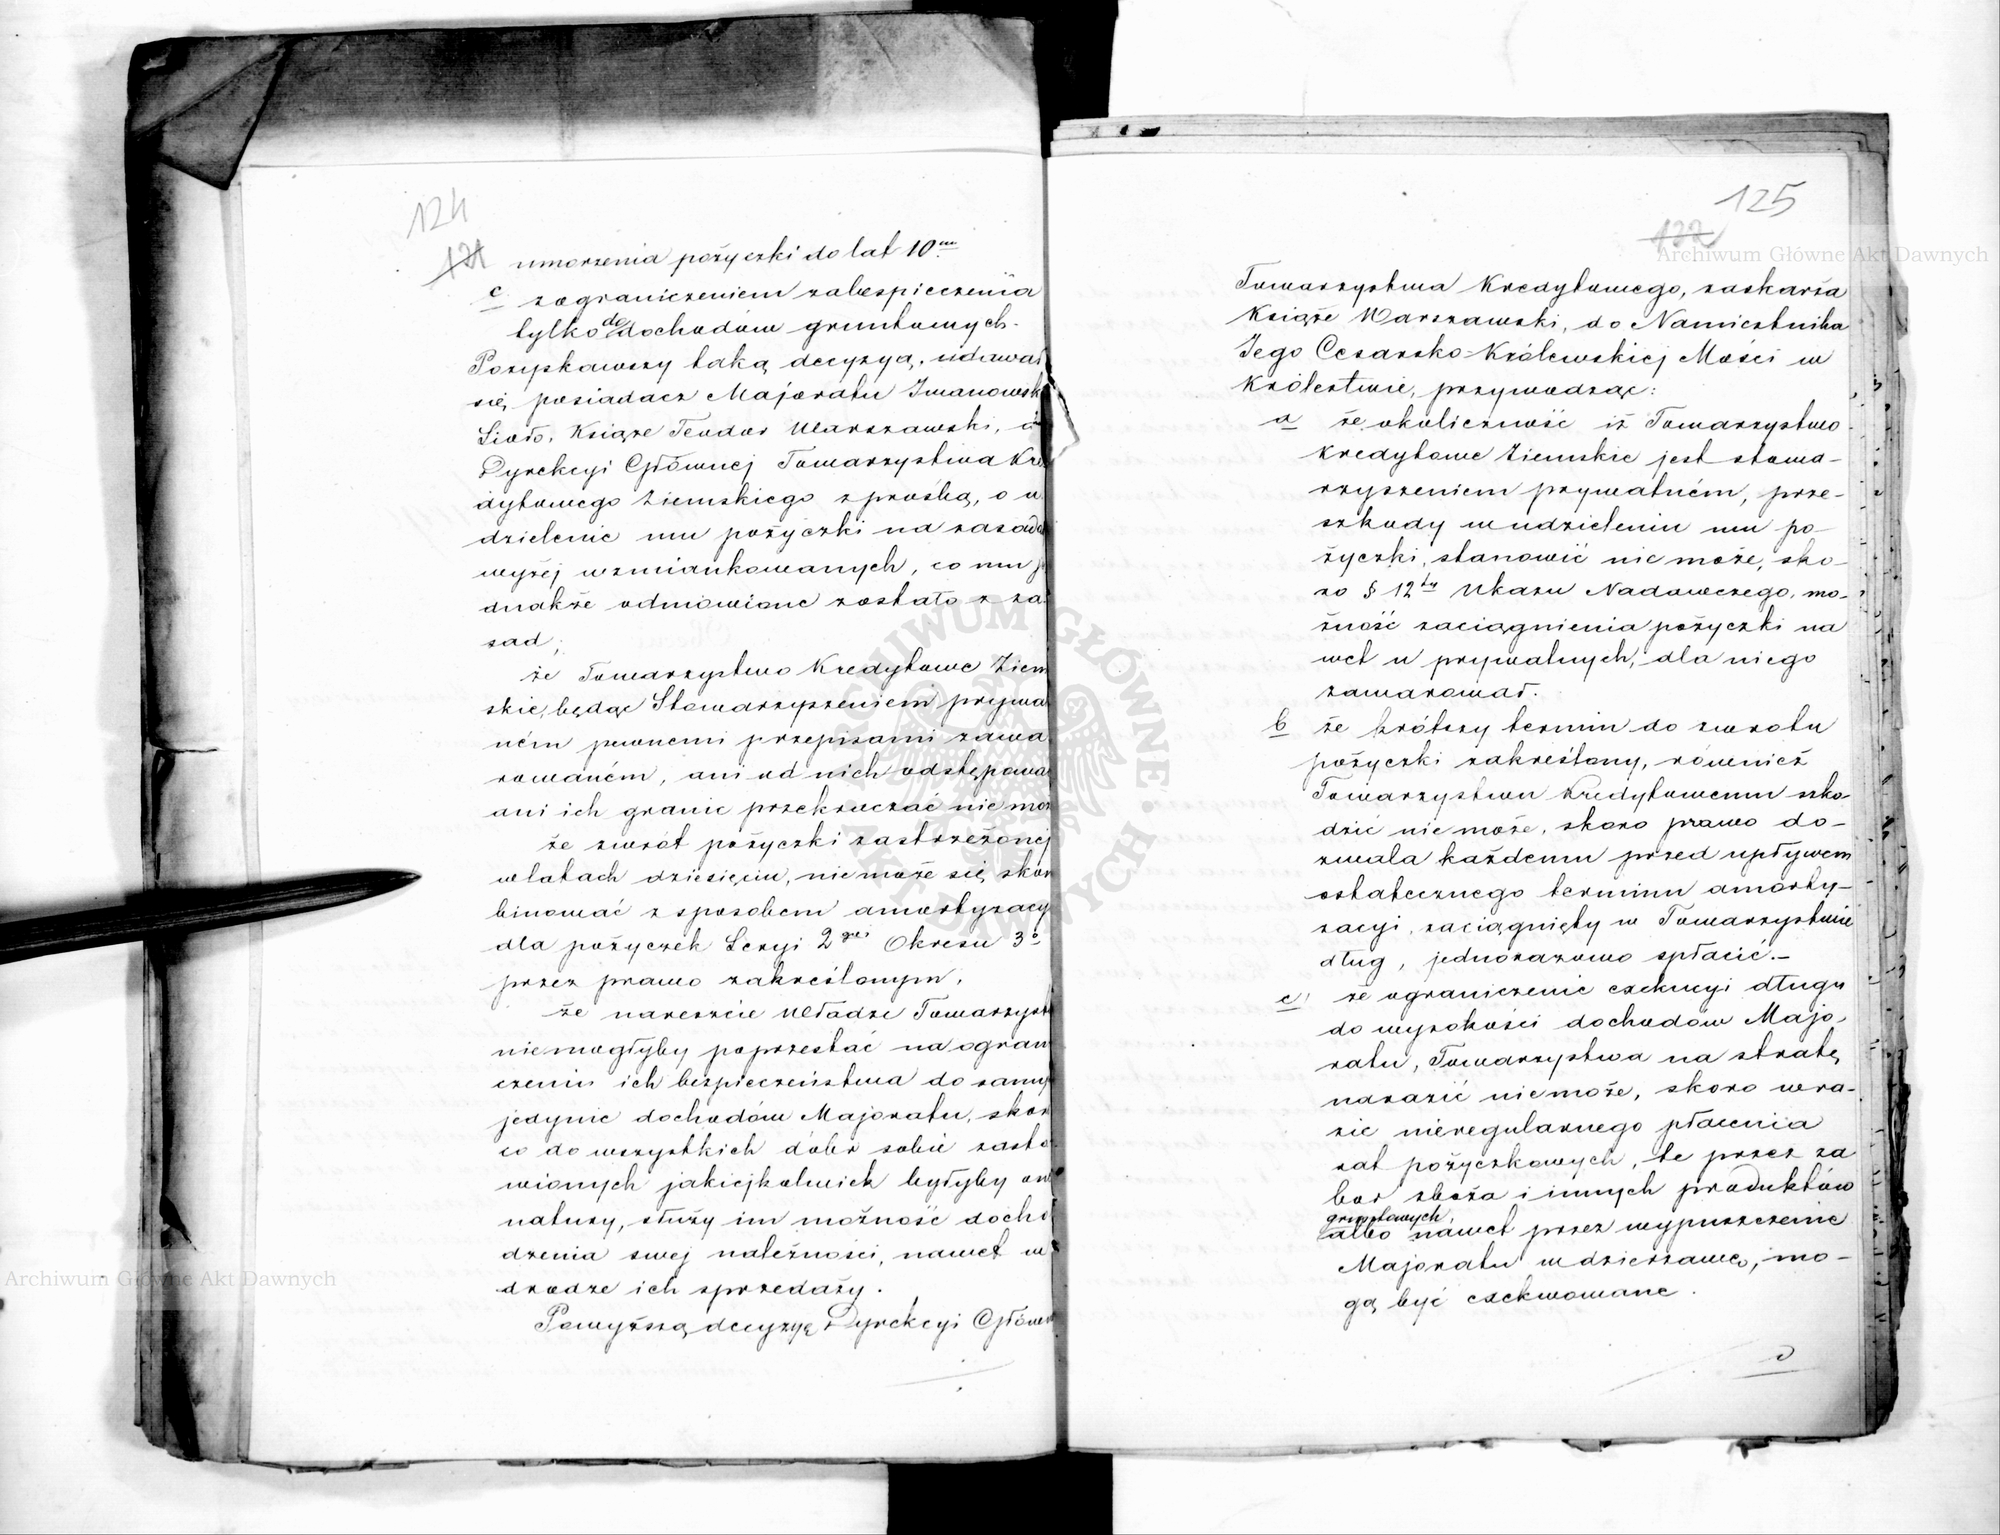 124
121
umorzenia pożyczki do lat 10ᵐ
c zograniczeniem zabespieczenia
tylko do dochodów gruntowych.
Pozyskawszy taką decyzyą, udawał
się, posiadacz Majoratu Iwanowsk
Sioło, Książe Teodor Warszawski,
Dyrekcyi Głównej Towarzystwa Kre
dytowego Ziemskiego z prośbą, o u
dzielenie mu pożyczki na zasada
wyżej wzmiankowanych, co mu je
dnakże odmówione zostało z za
sad;
że Towarzystwo Kredytowe Ziem
skie, będąc Stowarzyszeniem prywa
ném pewnemi przepisami zawa
rowaném, ani od nich odstępowa
ani ich granic przekraczać nie moż
że zwrot pożyczki zastrzeżonej
w latach dziesięciu, nie może się skom
binować z sposobem amortyzacy
dla pożyczek Seryi 2giej Okresu 3º
przez prawo zakreślonym,
że nareszcie Władze Towarzyst
nie mogłyby poprzestać na ograni
czeniu ich bezpieczeństwa do samy
jedynie dochodów Majoratu, skor
co do wszystkich dóbr sobie zasta
wionych jakiejkolwiek byłyby one
natury, służy im możność docho
dzenia swej należności, nawet w
drodze ich sprzedaży.
Powyższą decyzyę Dyrekcyi Główn
125
122
Towarzystwa Kredytowego, zaskarża
Książe Warszawski, do Namiestnika
Jego Cesarsko-Królewskiej Mości w
Królestwie, przywodząc:
a że okoliczność iż Towarzystwo
Kredytowe Ziemskie jest stowa-
rzyszeniem prywatném, prze-
szkody w udzieleniu mu po-
życzki, stanowić nie może, sko-
ro § 12ty Ukazu Nadawczego, mo-
żność zaciągnienia pożyczki na
wet u prywatnych, dla niego
zawarował.
b że krótszy termin do zwrotu
pożyczki zakreślany, również
Towarzystwu Kredytowemu szko-
dzić nie może, skoro prawo do-
zwala każdemu przed upływem
ostatecznego terminu amorty-
zacyi, zaciągnięty w Towarzystwie
dług, jednorazowo spłacić.-
c że ograniczenie exekucyi długu
do wysokości dochodów Majo-
ratu, Towarzystwa na stratę
narazić nie może, skoro w ra-
zie nieregularnego płacenia
rat pożyczkowych, te przez za
bor zboża i innych produktów
gruntowych
albo nawet przez wypuszczenie
Majoratu w dzierzawę, mo-
gą być exekwowane.
Archiwum Główne Akt Dawnych
Archiwum Główne Akt Dawnych
ARCHIWUM GŁÓWNE AKT DAWNYCH